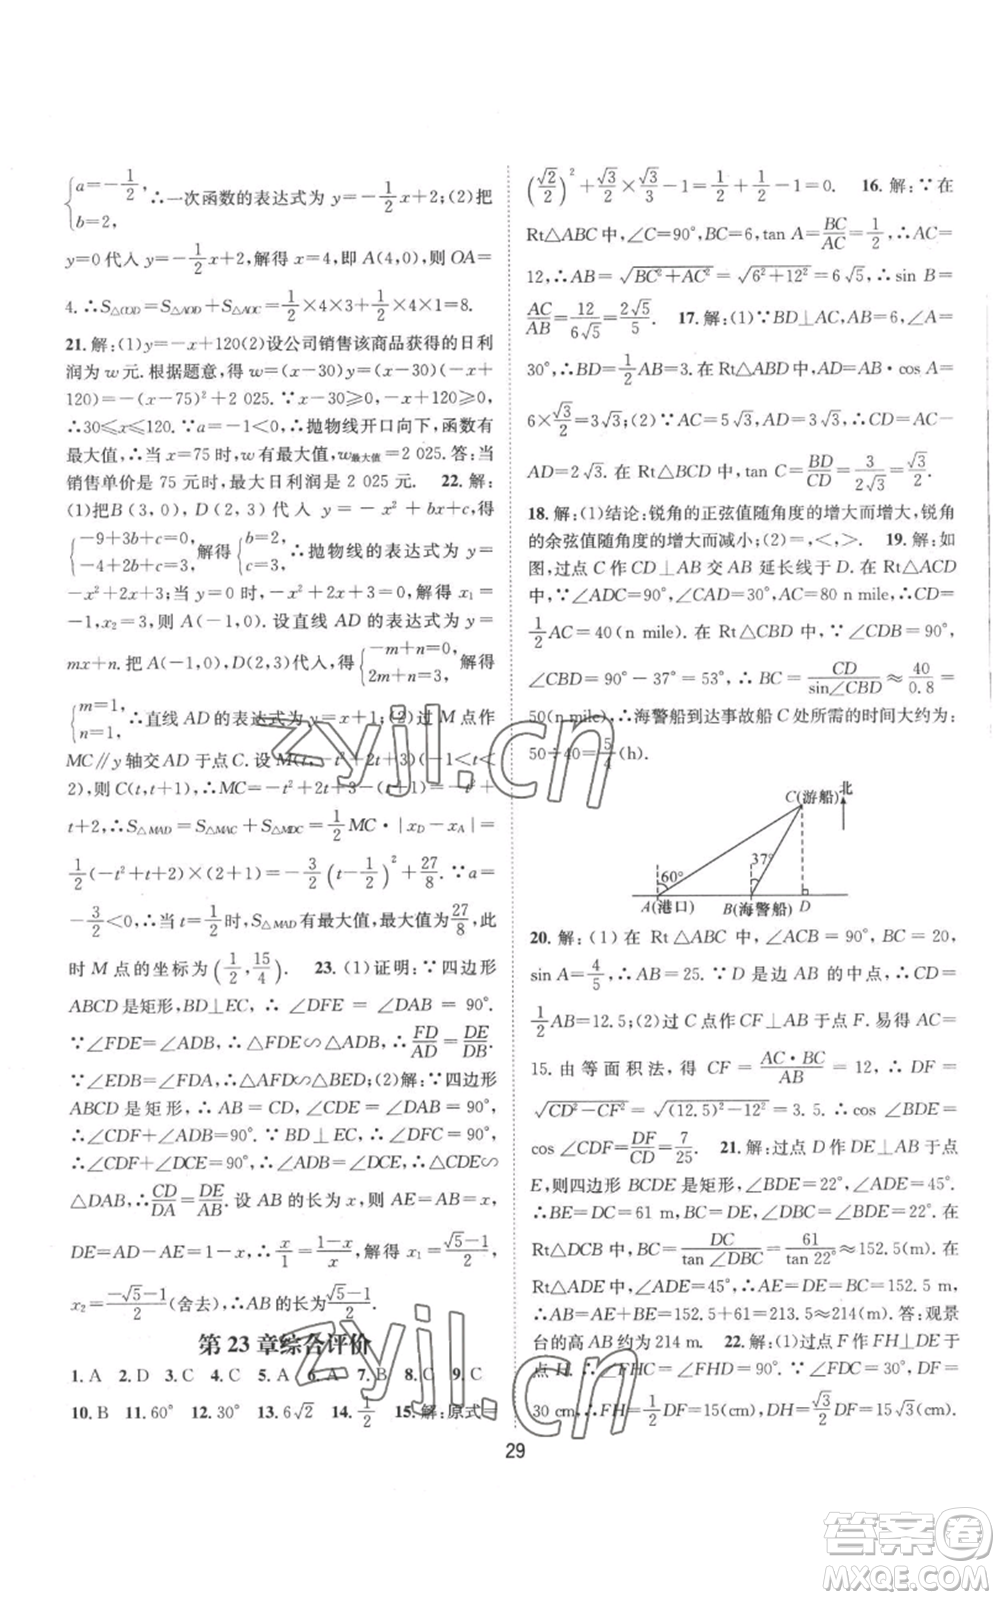 {a=-1/2, b=2, ∴一次函数的表达式为 y=-1/2x+2;(2)把
y=0代入 y=-1/2x+2,解得 x=4,即 A(4,0),则 OA=
4.∴S△COD=S△AOD+S△AOC=1/2×4×3+1/2×4×1=8.
21.解:(1)y=-x+120(2)设公司销售该商品获得的日利
润为 w 元.根据题意,得 w=(x-30)y=(x-30)(-x+
120)=-(x-75)²+2 025.∵x-30≥0,-x+120≥0,
∴30≤x≤120.∵a=-1<0,∴抛物线开口向下,函数有
最大值,∴当 x=75 时,w 有最大值,w最大值=2 025.答:当
销售单价是 75 元时,最大日利润是 2 025 元. 22.解:
(1)把B(3,0),D(2,3)代入 y=-x²+bx+c,得
{-9+3b+c=0, -4+2b+c=3, 解得{b=2, c=3, ∴抛物线的表达式为 y=
-x²+2x+3.当 y=0 时,-x²+2x+3=0,解得 x₁=
-1,x₂=3,则 A(-1,0).设直线 AD 的表达式为 y=
mx+n.把 A(-1,0),D(2,3)代入,得{-m+n=0, 2m+n=3, 解得
{m=1, n=1, ∴直线 AD 的表达式为 y=x+1;(2)过 M 点作
MC∥y 轴交 AD 于点 C.设 M(t,-t²+2t+3)(-1<t<
2),则 C(t,t+1),∴MC=-t²+2t+3-(t+1)=-t²+
t+2,∴S△MAD=S△MAC+S△MDC=1/2MC·|xD-xA|=
1/2(-t²+t+2)×(2+1)=-3/2(t-1/2)²+27/8.∵a=
-3/2<0,∴当 t=1/2时,S△MAD有最大值,最大值为27/8,此
时 M 点的坐标为(1/2,15/4). 23.(1)证明:∵四边形
ABCD 是矩形,BD⊥EC,∴∠DFE=∠DAB=90°.
∵∠FDE=∠ADB,∴△FDE∽△ADB,∴FD/AD=DE/DB.
∵∠ADF=∠BDE,∴△AFD∽△BED;(2)解:∵四边形
ABCD 是矩形,∴AB=CD,∠CDE=∠DAB=90°,
∴∠ADB+∠FDC=90°.∵BD⊥EC,∴∠DFC=90°,
∴∠FDC+∠DCE=90°,∴∠DCE=∠ADB,∴△CDE∽
△DAB,∴CD/DA=DE/AB.设 AB 的长为 x,则 AE=AB=x,
DE=AD-AE=1-x,∴x/1=(1-x)/x,解得 x₁=(√5-1)/2,
x₂=(-√5-1)/2(舍去),∴AB的长为(√5-1)/2.
第 23 章综合评价
1.A 2.D 3.C 4.C 5.A 6.A 7.B 8.C 9.C
10.B 11.60° 12.30° 13.6√2 14.1/2 15.解:原式=
(√2/2)²+√3/2×√3/3-1=1/2+1/2-1=0. 16.解:∵在
Rt△ABC 中,∠C=90°,BC=6,tan A=BC/AC=1/2,∴AC=
12,∴AB=√(BC²+AC²)=√(6²+12²)=6√5,∴sin B=
AC/AB=12/(6√5)=2√5/5. 17.解:(1)∵BD⊥AC,AB=6,∠A=
30°,∴BD=1/2AB=3.在 Rt△ABD 中,AD=AB·cos A=
6×√3/2=3√3;(2)∵AC=5√3,AD=3√3,∴CD=AC-
AD=2√3.在 Rt△BCD 中,tan C=BD/CD=3/(2√3)=√3/2.
18.解:(1)结论:锐角的正弦值随角度的增大而增大,锐角
的余弦值随角度的增大而减小;(2)=,<,>. 19.解:如
图,过点 C 作 CD⊥AB 交 AB 延长线于 D.在 Rt△ACD
中,∵∠ADC=90°,∠CAD=30°,AC=80 n mile,∴CD=
1/2AC=40(n mile).在 Rt△CBD 中,∵∠CDB=90°,
∠CBD=90°-37°=53°,∴BC=CD/sin∠CBD≈40/0.8=
50(n mile),∴海警船到达事故船 C 处所需的时间大约为:
50÷40=5/4(h).
C(游船)
北
60°
37°
A(港口) B(海警船) D
20.解:(1)在 Rt△ABC 中,∠ACB=90°,BC=20,
sin A=4/5,∴AB=25.∵D 是边 AB 的中点,∴CD=
1/2AB=12.5;(2)过 C 点作 CF⊥AB 于点 F.易得 AC=
15.由等面积法,得 CF=AC·BC/AB=12,∴DF=
√(CD²-CF²)=√((12.5)²-12²)=3.5.∴cos ∠BDC=
cos ∠CDF=DF/CD=7/25. 21.解:过点 D 作 DE⊥AB 于点
E,则四边形 BCDE 是矩形,∠BDE=22°,∠ADE=45°.
∴BE=DC=61 m,∠DBC=∠BDE=22°.在
Rt△DCB 中,BC=DC/tan∠DBC=61/tan 22°≈152.5(m).在
Rt△ADE 中,∠ADE=45°,∴AE=DE=BC=152.5 m,
∴AB=AE+BE=152.5+61=213.5≈214(m).答:观景
台的高 AB 约为 214 m. 22.解:(1)过点 F 作 FH⊥DE 于
点 H.∴∠FHC=∠FHD=90°.∵∠FDC=30°,DF=
30 cm,∴FH=1/2DF=15(cm),DH=√3/2DF=15√3(cm).
29
zyjl.cn
zyjl.cn
答案卷
MXQE.COM